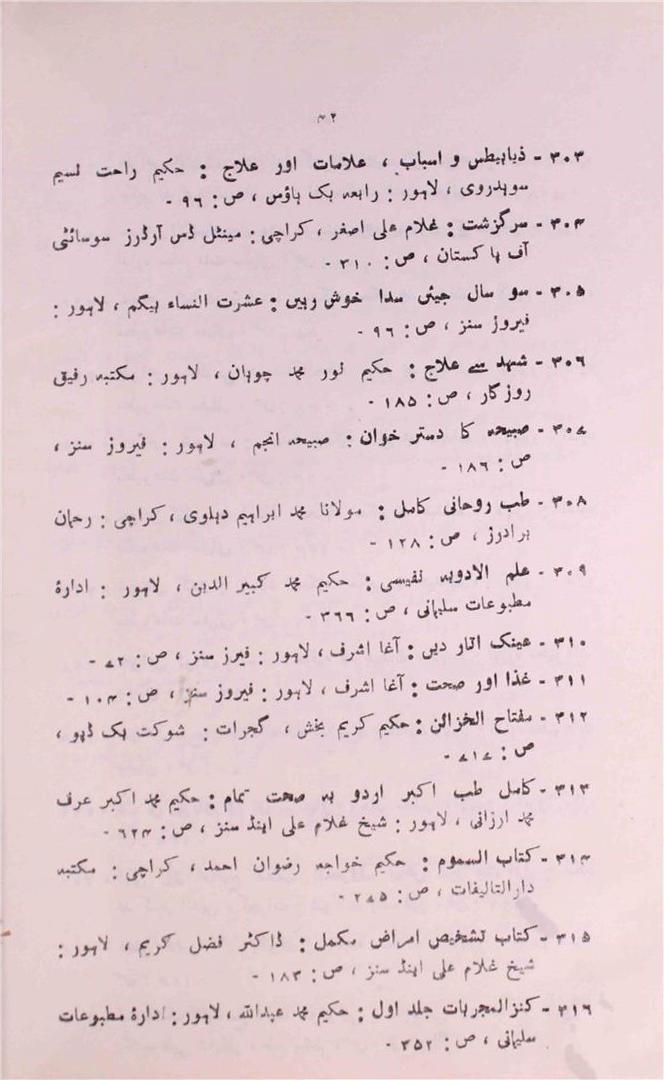 ۴۲
۳۰۳ - ذیابیطس و اسباب ، علامات اور علاج : حکیم راحت نسیم
سوہدروی ، لاہور : رابعہ بک ہاؤس ، ص : ۹۶ -
۳۰۴ - سرگزشت : غلام علی اصغر ، کراچی : مینٹل ڈس آرڈرز سوسائٹی
آف پاکستان ، ص : ۳۱۰ -
۳۰۵ - سو سال جیئں سدا خوش رہیں : عشرت النساء بیگم ، لاہور :
فیروز سنز ، ص : ۹۶ -
۳۰۶ - شہد سے علاج : حکیم نور محمد چوہان ، لاہور : مکتبہ رفیق
روزگار ، ص : ۱۸۵ -
۳۰۷ - صبیحہ کا دستر خوان : صبیحہ انجم ، لاہور : فیروز سنز ،
ص : ۱۸۶ -
۳۰۸ - طب روحانی کامل : مولانا محمد ابراہیم دہلوی ، کراچی : رحمان
برادرز ، ص : ۱۲۸ -
۳۰۹ - علم الادویہ نفیسی : حکیم محمد کبیر الدین ، لاہور : ادارۂ
مطبوعات سلیمانی ، ص : ۳۶۶ -
۳۱۰ - عینک اتار دیں : آغا اشرف ، لاہور : فیرز سنز ، ص : ۷۲ -
۳۱۱ - غذا اور صحت : آغا اشرف ، لاہور : فیروز سنز ، ص : ۱۰۴ -
۳۱۲ - مفتاح الخزائن : حکیم کریم بخش ، گجرات : شوکت بک ڈپو ،
ص : ۷۱۷ -
۳۱۳ - کامل طب اکبر اردو بہ صحت تمام : حکیم محمد اکبر عرف
محمد ارزانی ، لاہور : شیخ غلام علی اینڈ سنز ، ص : ۶۲۴ -
۳۱۴ - کتاب السموم : حکیم خواجہ رضوان احمد ، کراچی : مکتبہ
دارالتالیفات ، ص : ۲۷۵ -
۳۱۵ - کتاب تشخیص امراض مکمل : ڈاکٹر فضل کریم ، لاہور :
شیخ غلام علی اینڈ سنز ، ص : ۱۸۳ -
۳۱۶ - کنزالمجربات جلد اول : حکیم محمد عبداللہ ، لاہور : ادارۂ مطبوعات
سلیمانی ، ص : ۳۵۲ -